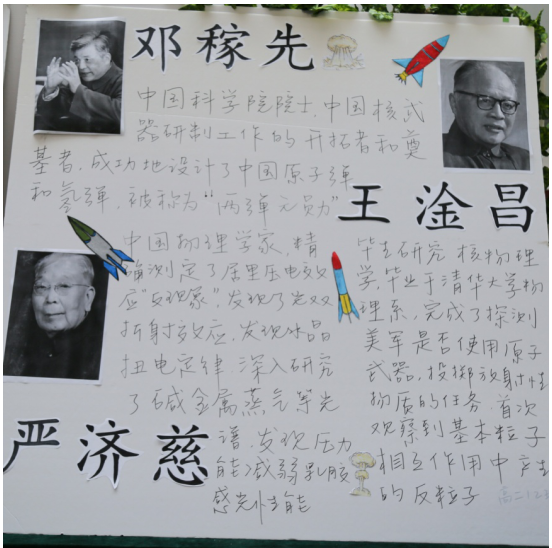 邓稼先
中国科学院院士,中国核武
器研制工作的开拓者和奠
基者,成功地设计了中国原子弹
和氢弹,被称为“两弹元勋”
王淦昌
毕生研究核物理
学,毕业于清华大学物
理系,完成了探测
美军是否使用原子
武器,投掷放射性
物质的任务.首次
观察到基本粒子
相互作用中产生
的反粒子
高二
中国物理学家,精
确测定了居里压电效
应“反现象”,发现了光双
折射效应,发现水晶
扭电定律 深入研究
了碱金属蒸气等光
谱,发现压力
能减弱乳胶
感光性能
严济慈